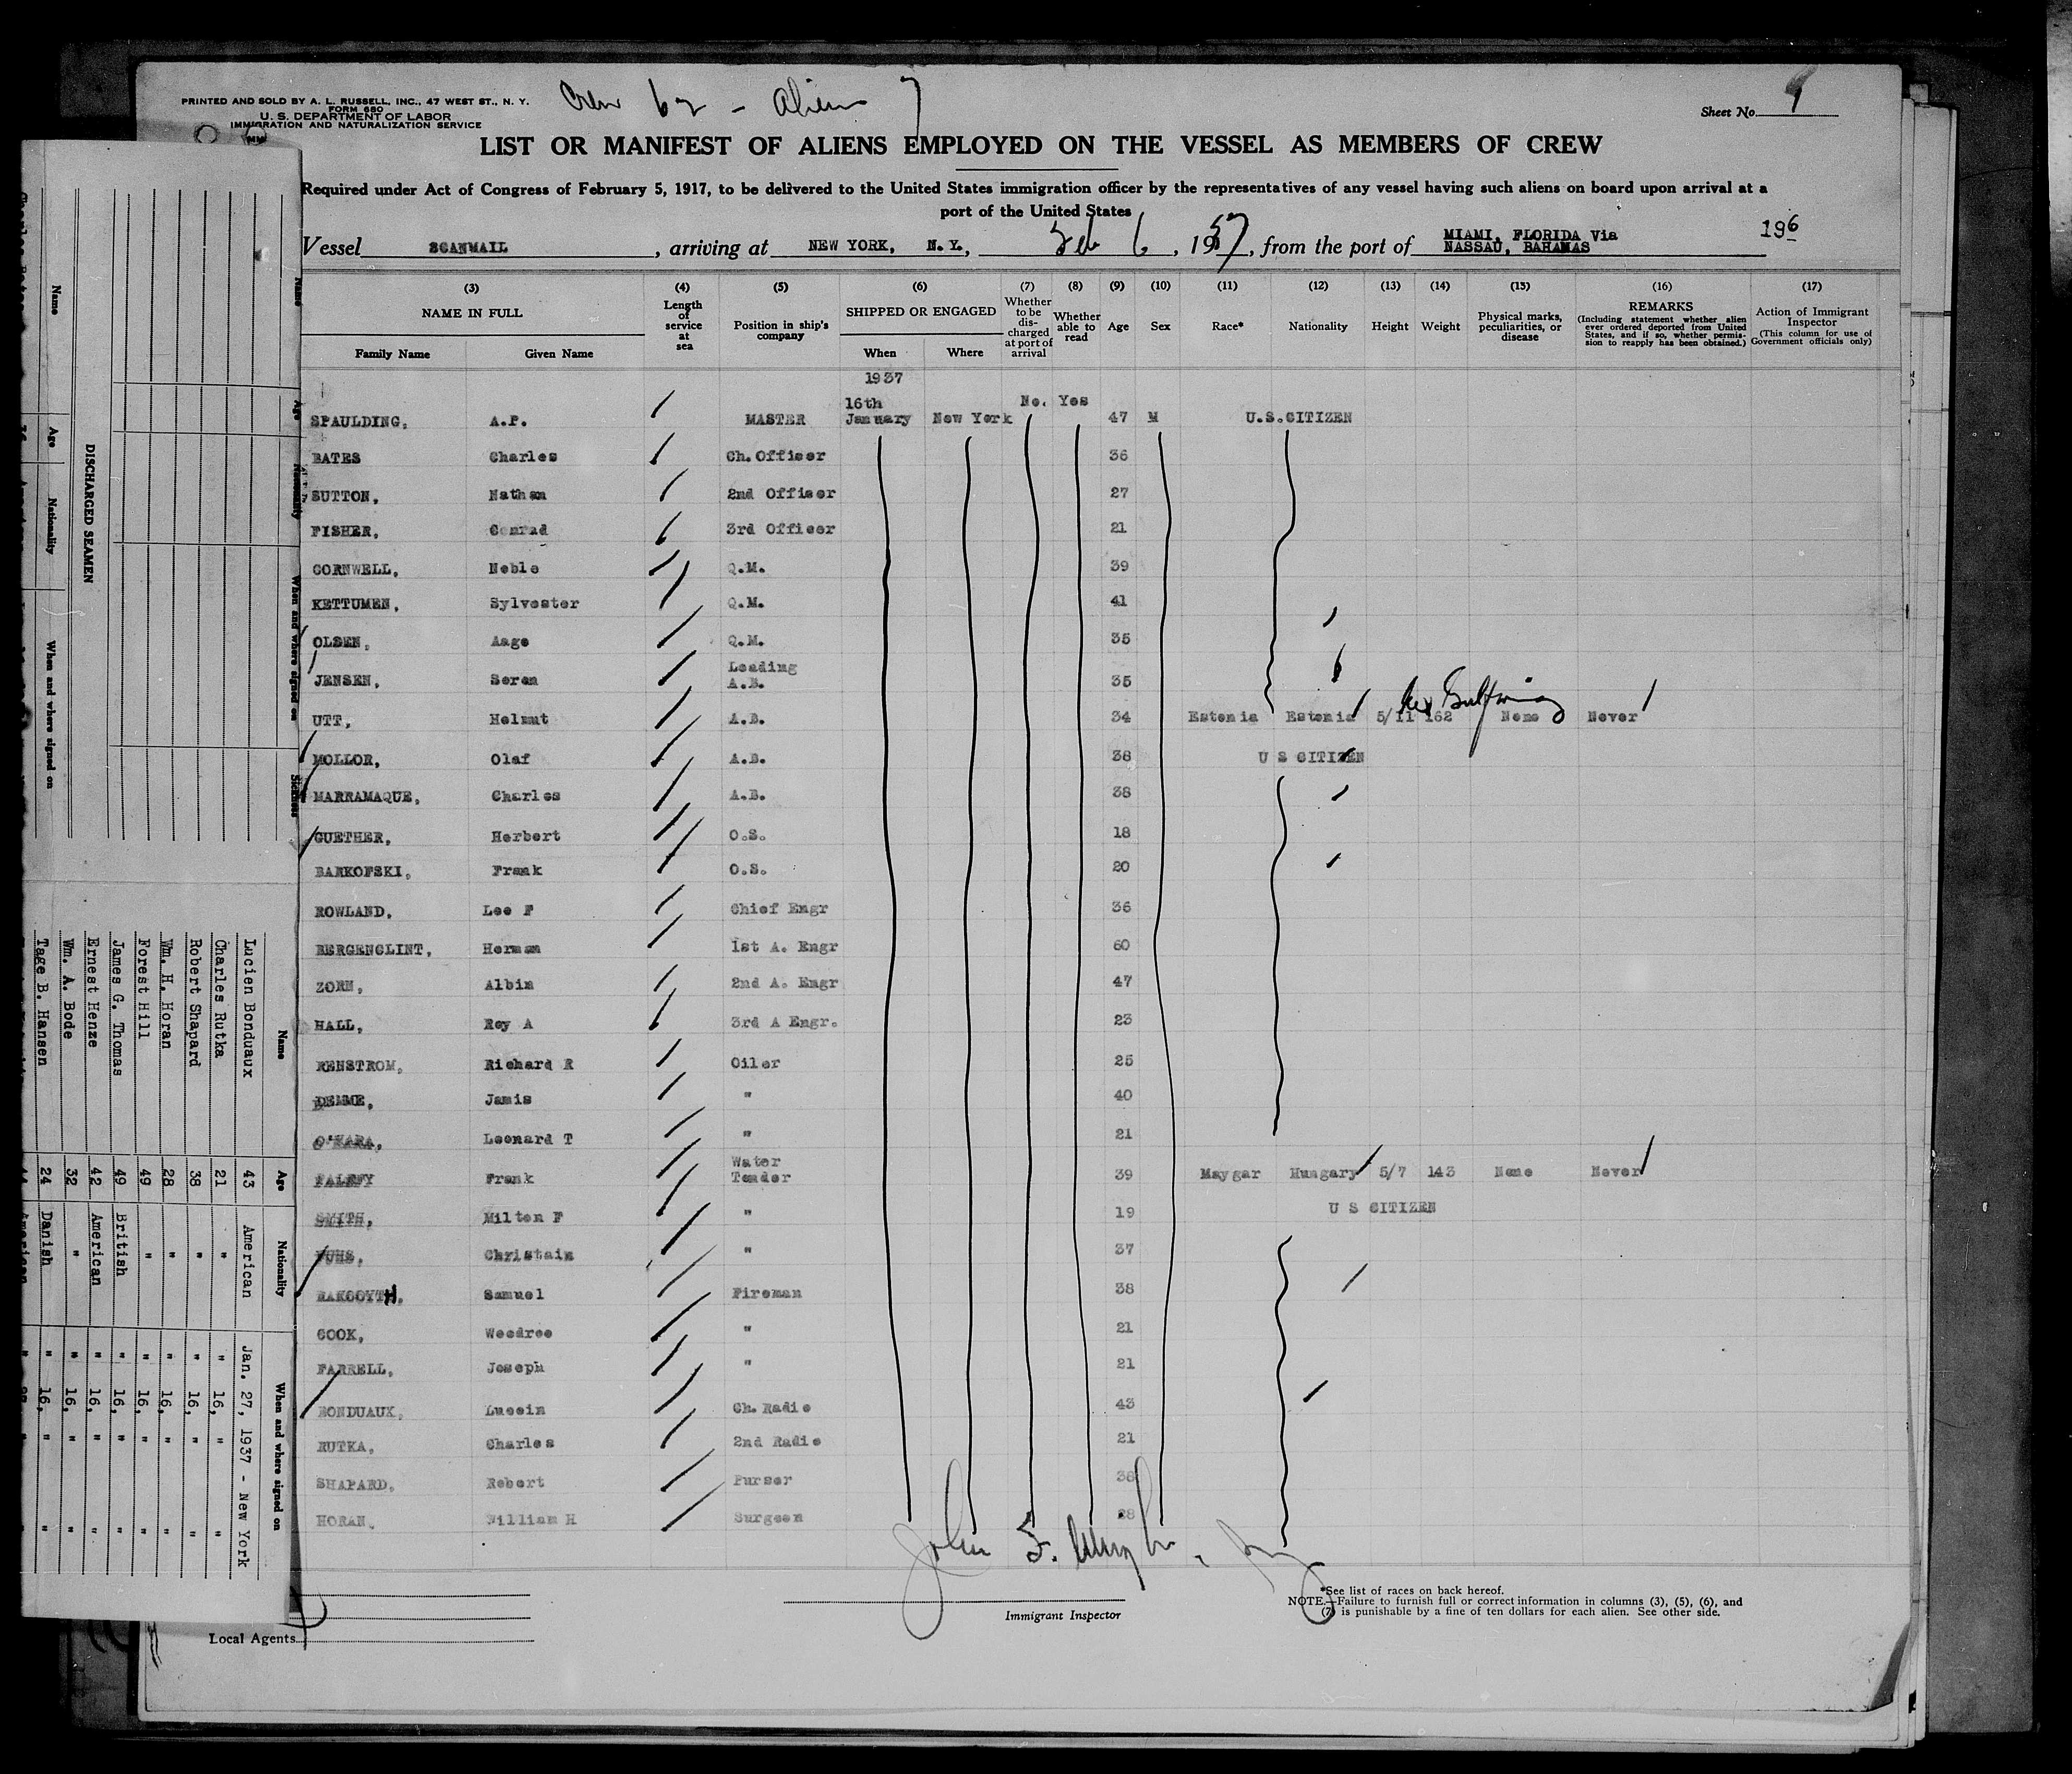 Crew 62 - Aliens 7
PRINTED AND SOLD BY A. L. RUSSELL, INC., 47 WEST ST., N. Y.
FORM 680
U. S. DEPARTMENT OF LABOR
IMMIGRATION AND NATURALIZATION SERVICE
Sheet No.
LIST OR MANIFEST OF ALIENS EMPLOYED ON THE VESSEL AS MEMBERS OF CREW
Required under Act of Congress of February 5, 1917, to be delivered to the United States immigration officer by the representatives of any vessel having such aliens on board upon arrival at a
port of the United States
Vessel SCANMAIL, arriving at NEW YORK, N.Y., Feb 6, 1937, from the port of MIAMI, FLORIDA Via
NASSAU, BAHAMAS
196
(3) (4) (5) (6) (7) (8) (9) (10) (11) (12) (13) (14) (15) (16) (17)
NAME IN FULL
Family Name Given Name
Length of service at sea
Position in ship's company
SHIPPED OR ENGAGED
When Where
Whether to be discharged at port of arrival
Whether able to read
Age Sex Race* Nationality Height Weight
Physical marks, peculiarities, or disease
REMARKS
(Including statement whether alien ever ordered deported from United States, and if so, whether permission to reapply has been obtained.)
Action of Immigrant Inspector
(This column for use of Government officials only)
1937
SPAULDING, A.P. MASTER 16th January New York No. Yes 47 M U.S.CITIZEN
BATES Charles Ch.Officer 36
SUTTON, Nathan 2nd Officer 27
FISHER, Conrad 3rd Officer 21
CORNWELL, Noble Q.M. 39
KETTUMEN, Sylvester Q.M. 41
OLSEN, Aage Q.M. 35
JENSEN, Soren Leading A.B. 35
UTT, Helmut A.B. 34 Estonia Estonia 5/11 162 None Never
MOLLOR, Olaf A.B. 38 U S CITIZEN
MARRAMAQUE, Charles A.B. 38
GUETHER, Herbert O.S. 18
BARKOFSKI, Frank O.S. 20
ROWLAND, Lee F Chief Engr 36
BERGENGLINT, Herman 1st A. Engr 60
ZORN, Albin 2nd A. Engr 47
HALL, Roy A 3rd A Engr. 23
RENSTROM, Richard R Oiler 25
Jamis " 40
O'HARA, Leonard T " 21
PALEFY Frank Water Tender 39 Maygar Hungary 5/7 143 None Never
SMITH, Milton F " 19 U S CITIZEN
FUHS, Christain " 37
Samuel Fireman 38
COOK, Woodroe " 21
FARRELL, Joseph " 21
BONDUAUX, Lucein Ch. Radio 43
RUTKA, Charles 2nd Radio 21
SHAPARD, Robert Purser 38
HORAN, William H Surgeon 28
John F.
Immigrant Inspector
*See list of races on back hereof.
NOTE.—Failure to furnish full or correct information in columns (3), (5), (6), and
(7) is punishable by a fine of ten dollars for each alien. See other side.
Local Agents
DISCHARGED SEAMEN
Name Age Nationality When and where signed on
Name Age Nationality When and where signed on
Lucien Bonduaux 43 American Jan. 27, 1937 - New York
Charles Rutka 21 " " 16, " "
Robert Shapard 38 " " 16, " "
Wm. H. Horan 28 " " 16, " "
Forest Hill 49 " " 16, " "
James G. Thomas 49 British " 16, " "
Ernest Henze 42 American " 16, " "
Wm. A. Bode 32 " " 16, " "
Tage B. Hansen 24 Danish " 16, " "